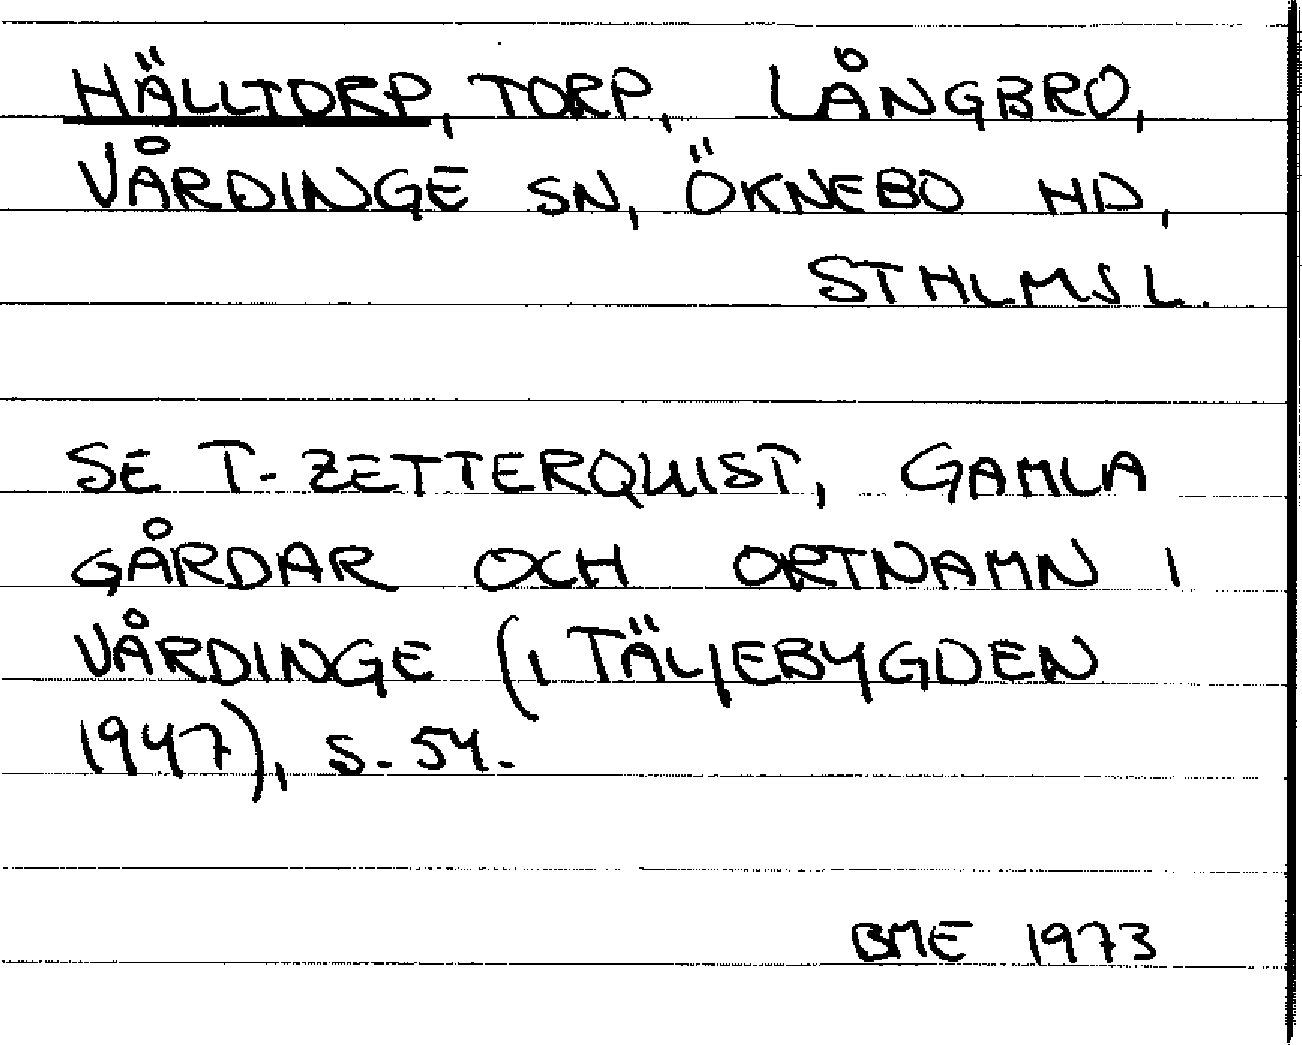 HÄLLTORP, TORP, LÅNGBRO,
VÅRDINGE SN, ÖKNEBO HD,
STHLMS L.
SE T. ZETTERQUIST, GAMLA
GÅRDAR OCH ORTNAMN I
VÅRDINGE (I TÄLJEBYGDEN
1947), S. 54.
BME 1973